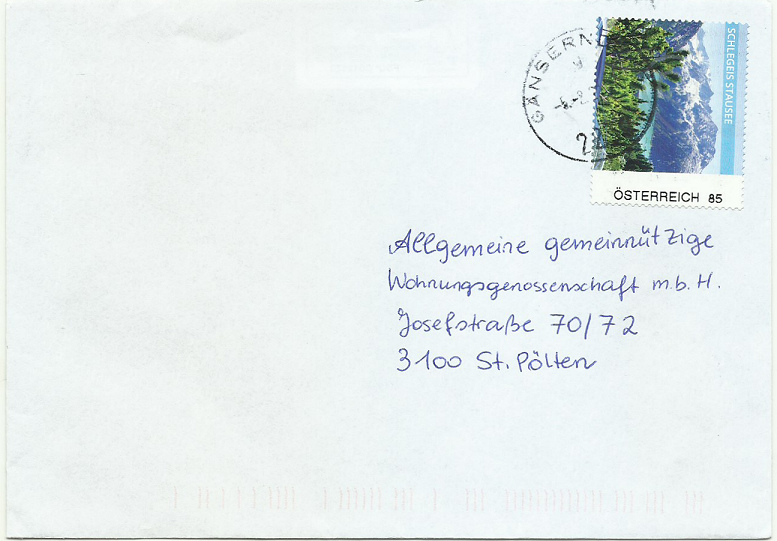 SCHLEGEIS STAUSEE
ÖSTERREICH 85
Allgemeine gemeinnützige
Wohnungsgenossenschaft m.b.H.
Josefstraße 70/72
3100 St. Pölten